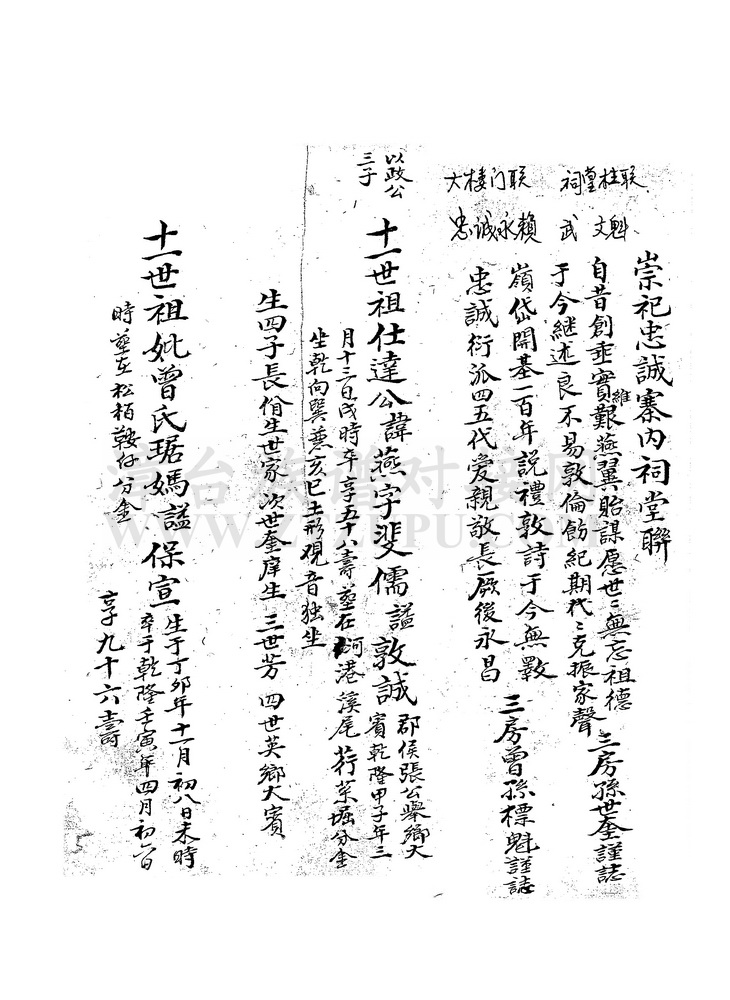 崇祀忠誠寨内祠堂聯
祠堂柱联
文魁
武
自昔創垂實維艱燕翼貽謀愿世二無忘祖德
于今継述良不易敦倫飭紀期代二克振家聲
三房孫世奎謹誌
大楼门联
忠诚永賴
嶺岱開基一百年說禮敦詩于今無斁
忠誠衍派四五代愛親敬長厥後永昌
三房曽孫標魁謹誌
以政公
三子
十一世祖仕達公諱燕字斐儒謚敦誠
郡侯張公舉鄉大
賓乾隆甲子年三
月十三日戌時卒享五十八壽塟在河港溪尾荇菜堀分金
坐乾向巽兼亥巳土形观音独坐
生四子長 生世家次世奎庠生 三世芳 四世英鄉大賓
十一世祖妣曽氏琚媽謚保宣
生于丁卯年十一月初八日未時
卒于乾隆壬寅年四月初 日
時塟在松栢鞍仔分金
享九十六壽
漳台族谱对接网
WWW.ZTZUPU.COM